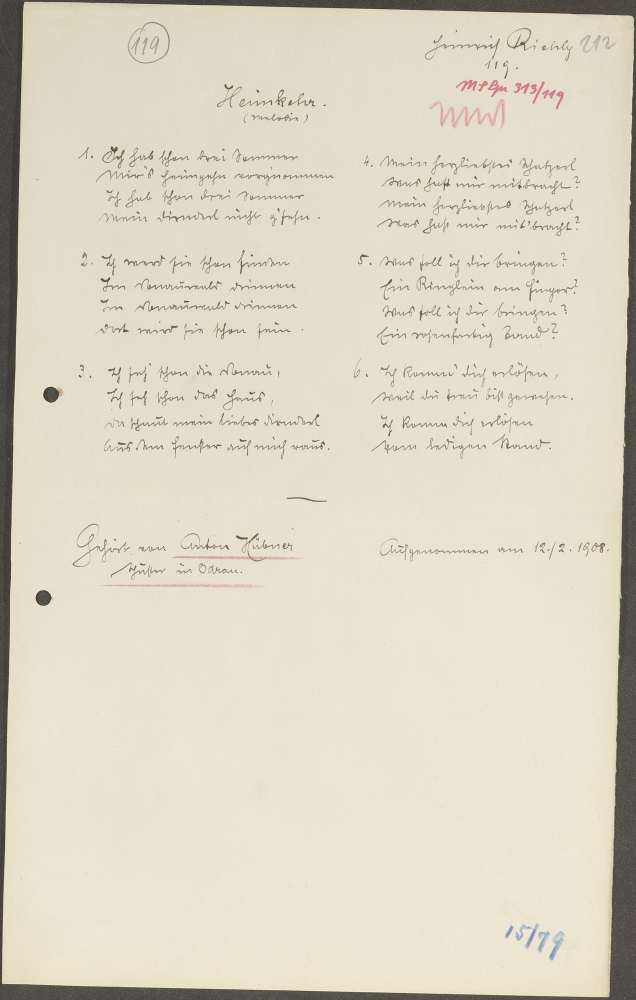 119
Heinrich Richly 212
119.
M.S.Gr 313/119
Heimkehr.
(Melodie)
1. Ich hab schon drei Sommer
Mir's heimgehn vorgnommen
Ich hab schon drei Sommer
Mein Dirnderl nicht g'sehn.
2. Ich werd sie schon finden
Im Donauwald drinnen
Im Donauwald drinnen
Dort wird sie schon sein.
3. Ich seh' schon die Donau,
Ich seh schon das Haus,
Da schaut mein liebes Dirnderl
Aus dem Fenster auf mich raus.
4. Mein herzliebstes Schatzerl
Was hast mir mitbracht?
Mein herzliebstes Schatzerl
Was hast mir mit'bracht?
5. Was soll ich dir bringen?
Ein Ringlein am Finger?
Was soll ich dir bringen?
Ein rosenfarbig Band?
6. Ich komme dich erlösen,
Weil du treu bist gewesen.
Ich komme dich erlösen
Vom ledigen Stand.
Gehört von Anton Hübner
Schuster in Odrau.
Aufgenommen am 12./2. 1908.
15/79